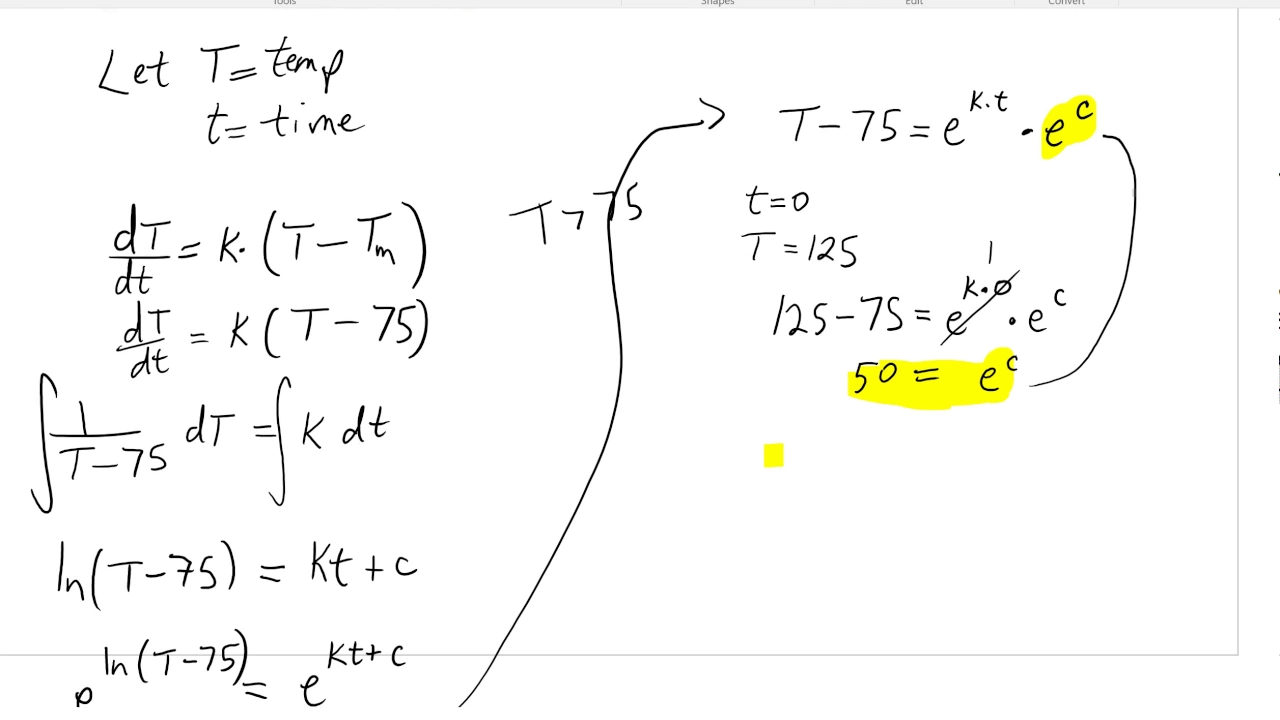 Tools Shapes Edit Convert
Let T = temp
t = time
dT/dt = K·(T - Tm)
dT/dt = K(T - 75)
∫ 1/(T - 75) dT = ∫ K dt
ln(T - 75) = Kt + c
e^(ln(T - 75)) = e^(Kt + c)
T > 75
T - 75 = e^(K·t) · e^c
t = 0
T = 125
1
125 - 75 = e^(K·0) · e^c
50 = e^c